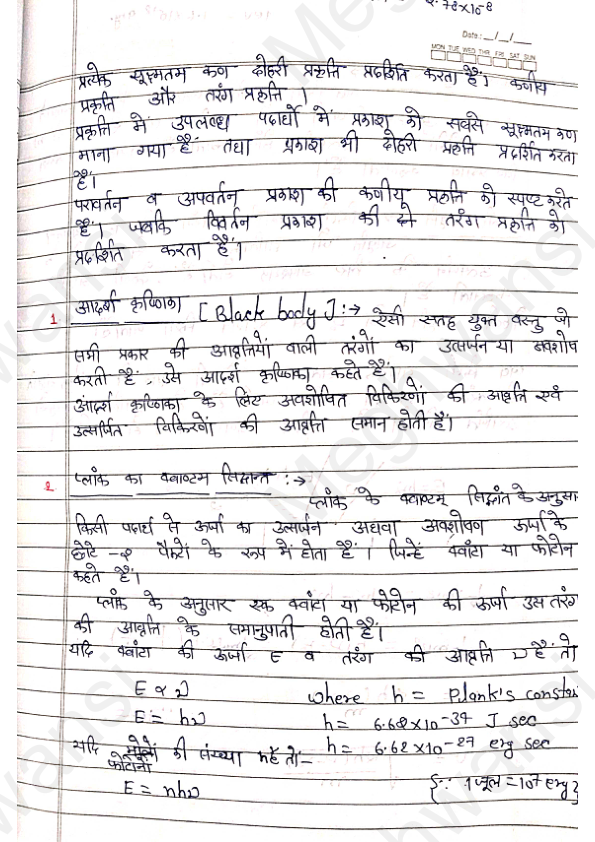 Date: __/__/__
MON TUE WED THU FRI SAT SUN
प्रत्येक सूक्ष्मतम कण दोहरी प्रकृति प्रदर्शित करता है। कणीय
प्रकृति और तरंग प्रकृति।
प्रकृति में उपलब्ध पदार्थों में प्रकाश को सबसे सूक्ष्मतम कण
माना गया है तथा प्रकाश भी दोहरी प्रकृति प्रदर्शित करता
है।
परावर्तन व अपवर्तन प्रकाश की कणीय प्रकृति को स्पष्ट करते
है। जबकि विवर्तन प्रकाश की तरंग प्रकृति को
प्रदर्शित करता है।
1 आदर्श कृष्णिका [Black body] :→ ऐसी सतह युक्त वस्तु जो
सभी प्रकार की आवृत्तियों वाली तरंगों का उत्सर्जन या अवशोष
करती है, उसे आदर्श कृष्णिका कहते है।
आदर्श कृष्णिका के लिए अवशोषित विकिरणों की आवृत्ति एवं
उत्सर्जित विकिरणों की आवृत्ति समान होती है।
2 प्लांक का क्वाण्टम सिद्धान्त :→
प्लांक के क्वाण्टम् सिद्धांत के अनुसा
किसी पदार्थ से ऊर्जा का उत्सर्जन अथवा अवशोषण ऊर्जा के
छोटे-२ पैकेटों के रूप में होता है। जिन्हें क्वांटा या फोटोन
कहते है।
प्लांक के अनुसार एक क्वांटा या फोटोन की ऊर्जा उस तरंग
की आवृत्ति के समानुपाती होती है।
यदि क्वांटा की ऊर्जा E व तरंग की आवृत्ति ν है तो
E ∝ ν where h = Plank's constan
E = hν h = 6.62×10⁻³⁴ J sec
यदि फोटोनों की संख्या n है तो- h = 6.62×10⁻²⁷ erg sec
E = nhν {∵ 1 जूल = 10⁷ erg}